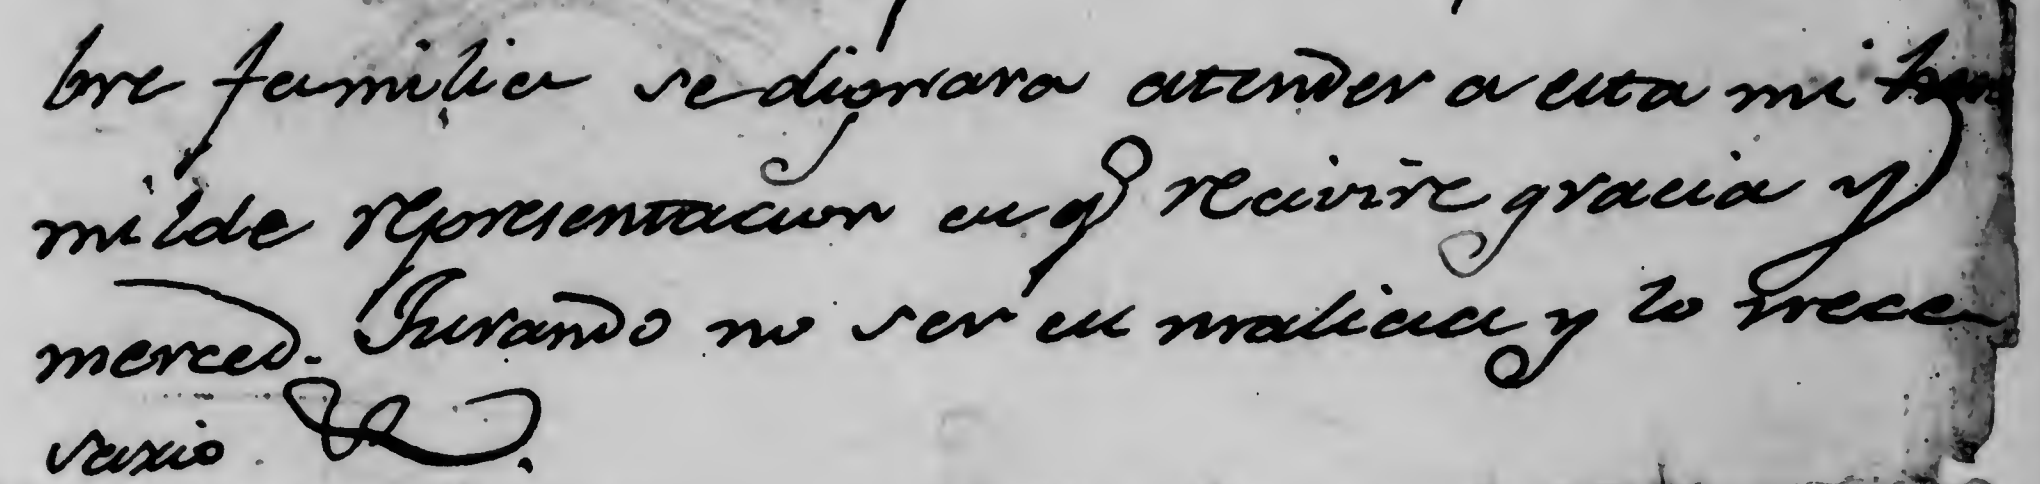 bre familia se dignara atender a esta mi hu
milde representacion en q̃ recivire gracia y
merced. Jurando no ser en malicia y lo nece
sario.